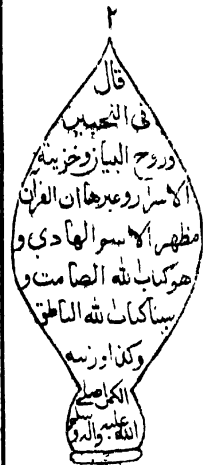 ٢
قال
في التحبير
وروح البيان وخزينة
الاسرار وغيرها ان القرآن
مظهر الاسم الهادي و
هو كتاب الله الصامت و
نبينا كتاب الله الناطق
وكذا ورثته
الكمل صلى
الله عليه وآله و
سلم